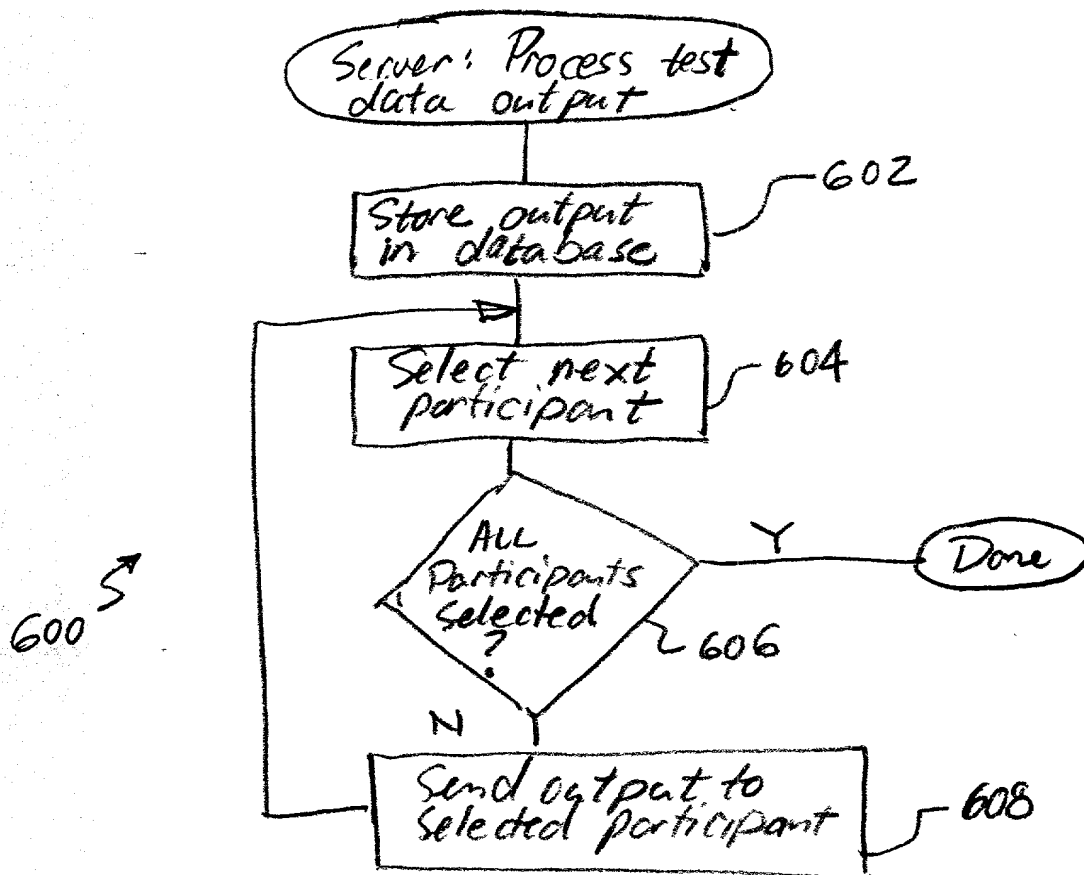 Server: Process test
data output
602
Store output
in database
604
Select next
participant
ALL
Participants
selected
?
Y
Done
606
600
N
Send output to
selected participant
608